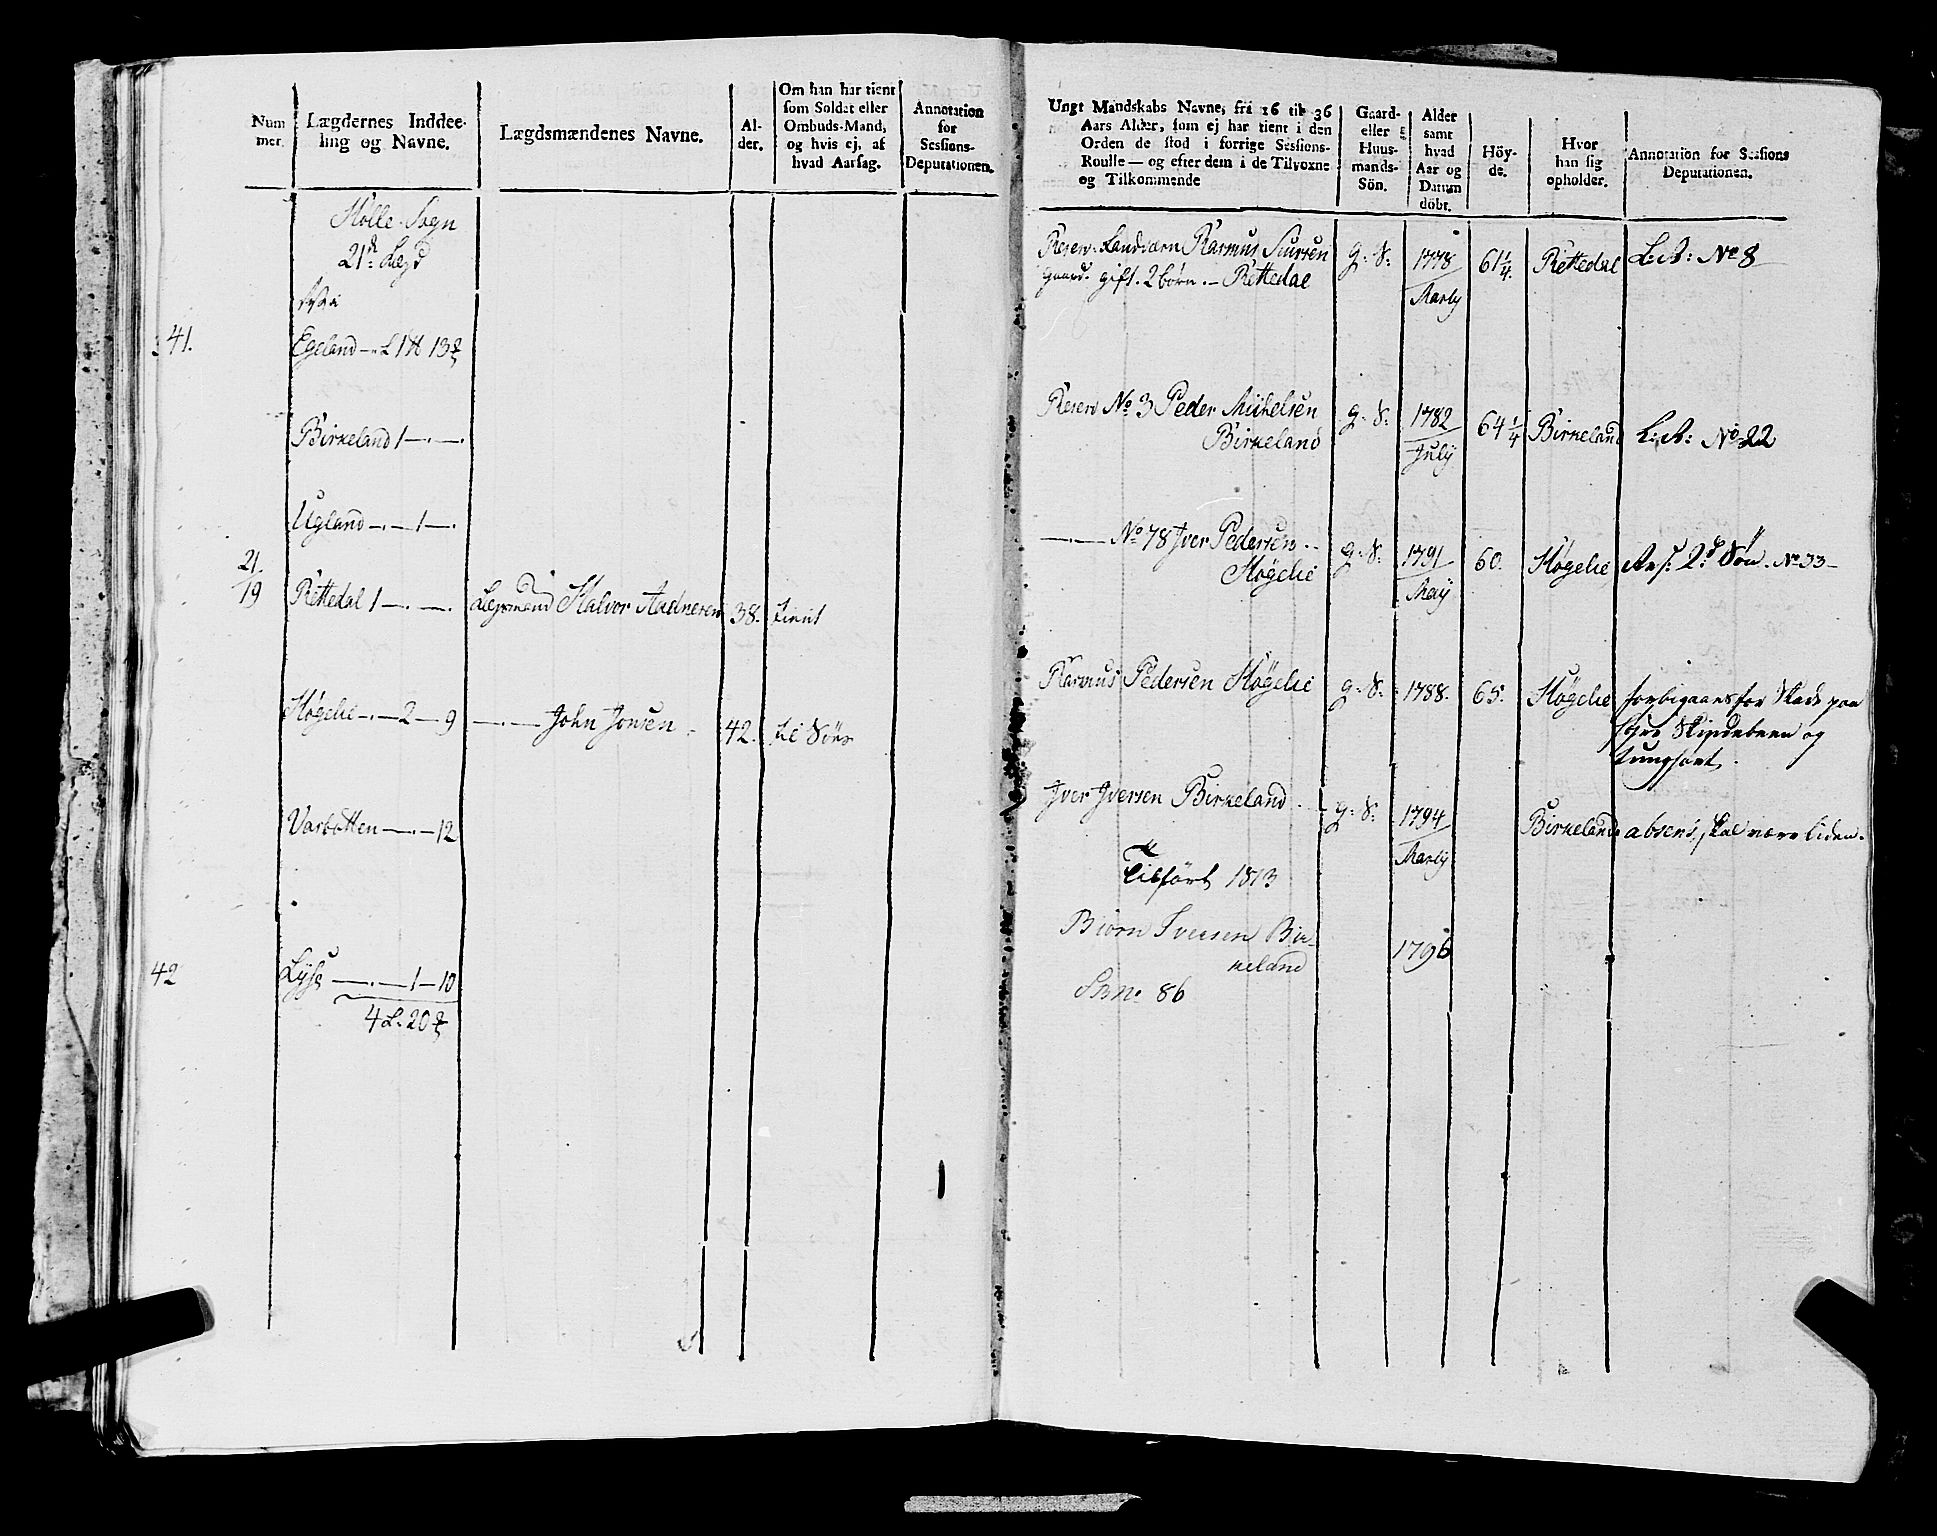 Num
mer.
Lægdernes Inddee-
ling og Navne.
Lægdsmændenes Navne.
Al-
der.
Om han har tient
som Soldat eller
Ombuds-Mand,
og hvis ej, af
hvad Aarsag.
Annotation
for
Sessions-
Deputationen.
Holle Sogn
21de Lægd
41.
Egeland
Birkeland 1
Ugland 1
21
19
Rettedal 1
Lægsmand Halvor Aadnesen 38. tient
Høgelie 2 9
John Jonsen 42.
Varbotten 12
42
Lyse 1 10
4 L. 20
Ungt Mandskabs Navne, fra 16 til 36
Aars Alder, som ej har tient i den
Orden de stod i forrige Sessions-
Roulle — og efter dem i de Tilvoxne
og Tilkommende
Gaard-
eller
Huus-
mands-
Sön.
Alder
samt
hvad
Aar og
Datum
döbt.
Höy-
de.
Hvor
han sig
opholder.
Annotation for Sessions
Deputationen.
Reserv. Landværn Rasmus Siursen g. S: 1778 61 1/4. Rettedal L: A: No 8
gift. 2 börn. Rettedal Martij
Reserv No 3 Peder Mikelsen g. S: 1782 64 1/4 Birkeland L: A: No 22
Birkeland July
No 78 Iver Pedersen g. S: 1791 60. Høgelie 2d Søn. No 33
Høgelie Maij
Rasmus Pedersen Høgelie g. S: 1788. 65. Høgelie forbigaaes for Skade paa
Skindebeen og
tunghørt.
Iver Iversen Birkeland g. S: 1794 Birkeland absens, skal være liden.
Martij
Tilført 1813
Biörn Iversen Bir- 1796
keland
No 86